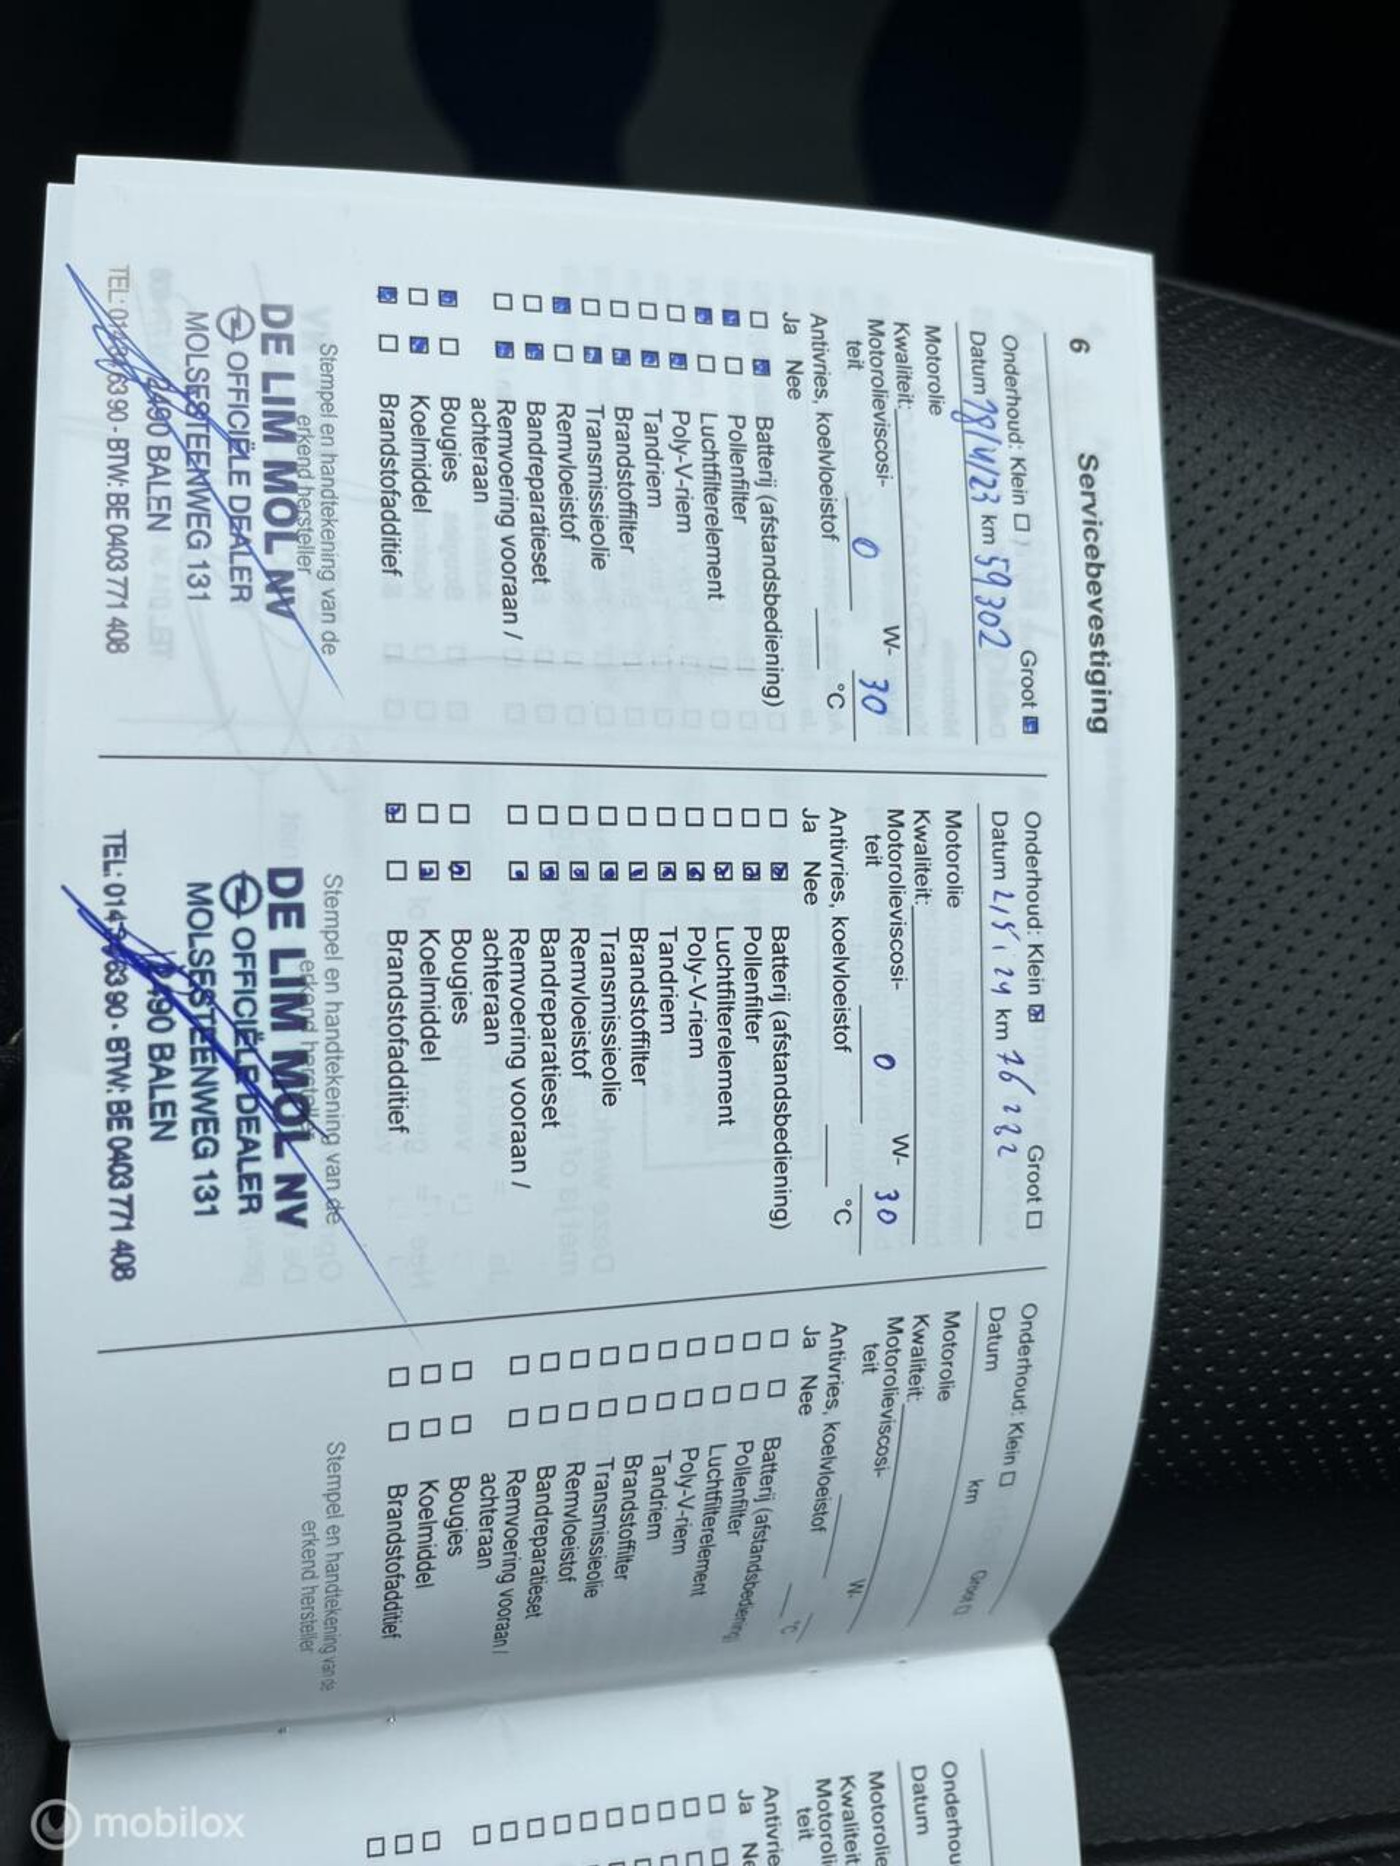 6
Servicebevestiging
Onderhoud: Klein Groot
Datum 28/4/23 km 59302
Motorolie
Kwaliteit:
Motorolieviscosi-
teit 0 W- 30
Antivries, koelvloeistof °C
Ja Nee
Batterij (afstandsbediening)
Pollenfilter
Luchtfilterelement
Poly-V-riem
Tandriem
Brandstoffilter
Transmissieolie
Remvloeistof
Bandreparatieset
Remvoering vooraan /
achteraan
Bougies
Koelmiddel
Brandstofadditief
Stempel en handtekening van de
erkend hersteller
DE LIM MOL NV
OFFICIËLE DEALER
MOLSESTEENWEG 131
2490 BALEN
63 90 - BTW: BE 0403 771 408
Onderhoud: Klein Groot
Datum 2/5/24 km 76222
Motorolie
Kwaliteit:
Motorolieviscosi-
teit 0 W- 30
Antivries, koelvloeistof °C
Ja Nee
Batterij (afstandsbediening)
Pollenfilter
Luchtfilterelement
Poly-V-riem
Tandriem
Brandstoffilter
Transmissieolie
Remvloeistof
Bandreparatieset
Remvoering vooraan /
achteraan
Bougies
Koelmiddel
Brandstofadditief
Stempel en handtekening van de
erkend hersteller
DE LIM MOL NV
OFFICIËLE DEALER
MOLSESTEENWEG 131
2490 BALEN
63 90 - BTW: BE 0403 771 408
Onderhoud: Klein Groot
Datum km
Motorolie
Kwaliteit:
Motorolieviscosi-
teit W-
Antivries, koelvloeistof °C
Ja Nee
Batterij (afstandsbediening)
Pollenfilter
Luchtfilterelement
Poly-V-riem
Tandriem
Brandstoffilter
Transmissieolie
Remvloeistof
Bandreparatieset
Remvoering vooraan /
achteraan
Bougies
Koelmiddel
Brandstofadditief
Stempel en handtekening van de
erkend hersteller
Onderhou
Datum
Motorolie
Kwaliteit
Motoroli
teit
Antivrie
Ja Ne
mobilox